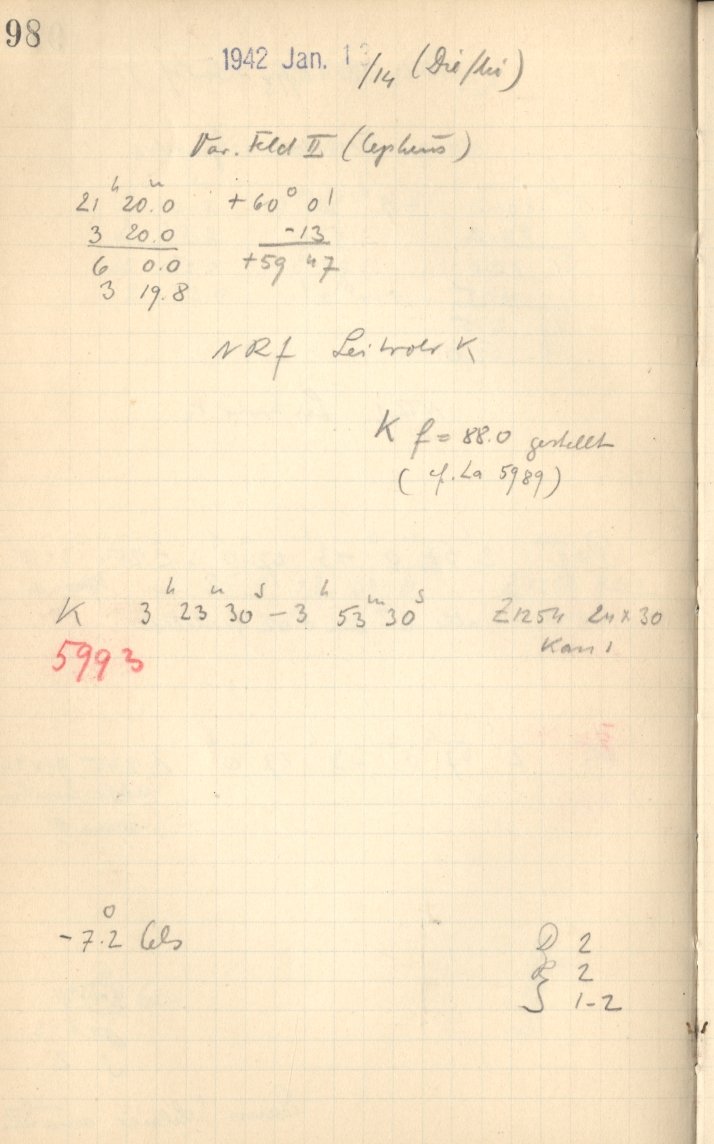 98
1942 Jan. 13/14 (Die/Mi)
Var. Feld II (Cepheus)
21ʰ 20.0ᵐ +60° 0'
3 20.0 -13
6 0.0 +59 47
3 19.8
NRf Leitrohr K
K f = 88.0 gestellt
(cf. La 5989)
K 3ʰ 23ᵐ 30ˢ - 3ʰ 53ᵐ 30ˢ Z1254 24 x 30
5993
-7.2° Cels
D 2
2
S 1-2